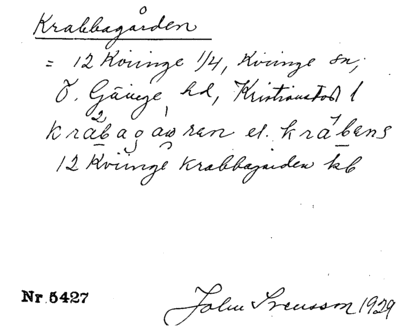 Krabbagården
= 12 Kviinge 1/4, Kviinge sn,
Ö. Göinge hd, Kristianstad l
krabagåren el. krabens
12 Kviinge Krabbagården kb
Nr 5427 John Svensson 1929